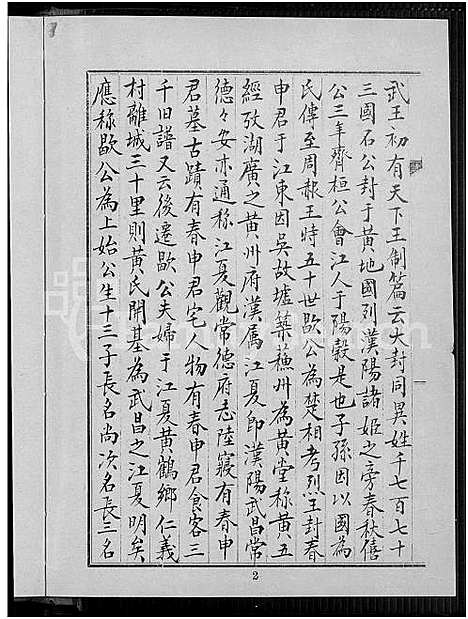 武王初有天下王制篇云大封同異姓千七百七十
三國石公封于黃地國列漢陽諸姬之旁春秋僖
公三年齊桓公會江人于陽穀是也子孫因以國為
氏傳至周赧王時五十世歇公為楚相考烈王封春
申君于江東因吳故墟築蘓州為黃堂称黃五
經攷湖廣之黃州府漢属江夏即漢陽武昌常
德々安亦通称江夏觀常德府志陸寢有春申
君墓古蹟有春申君宅人物有春申君食客三
千旧譜又云後遷歇公夫婦于江夏黃鶴鄉仁義
村離城三十里則黃氏開基為武昌之江夏明矣
應称歇公為上始公生十三子長名尚次名長三名
2